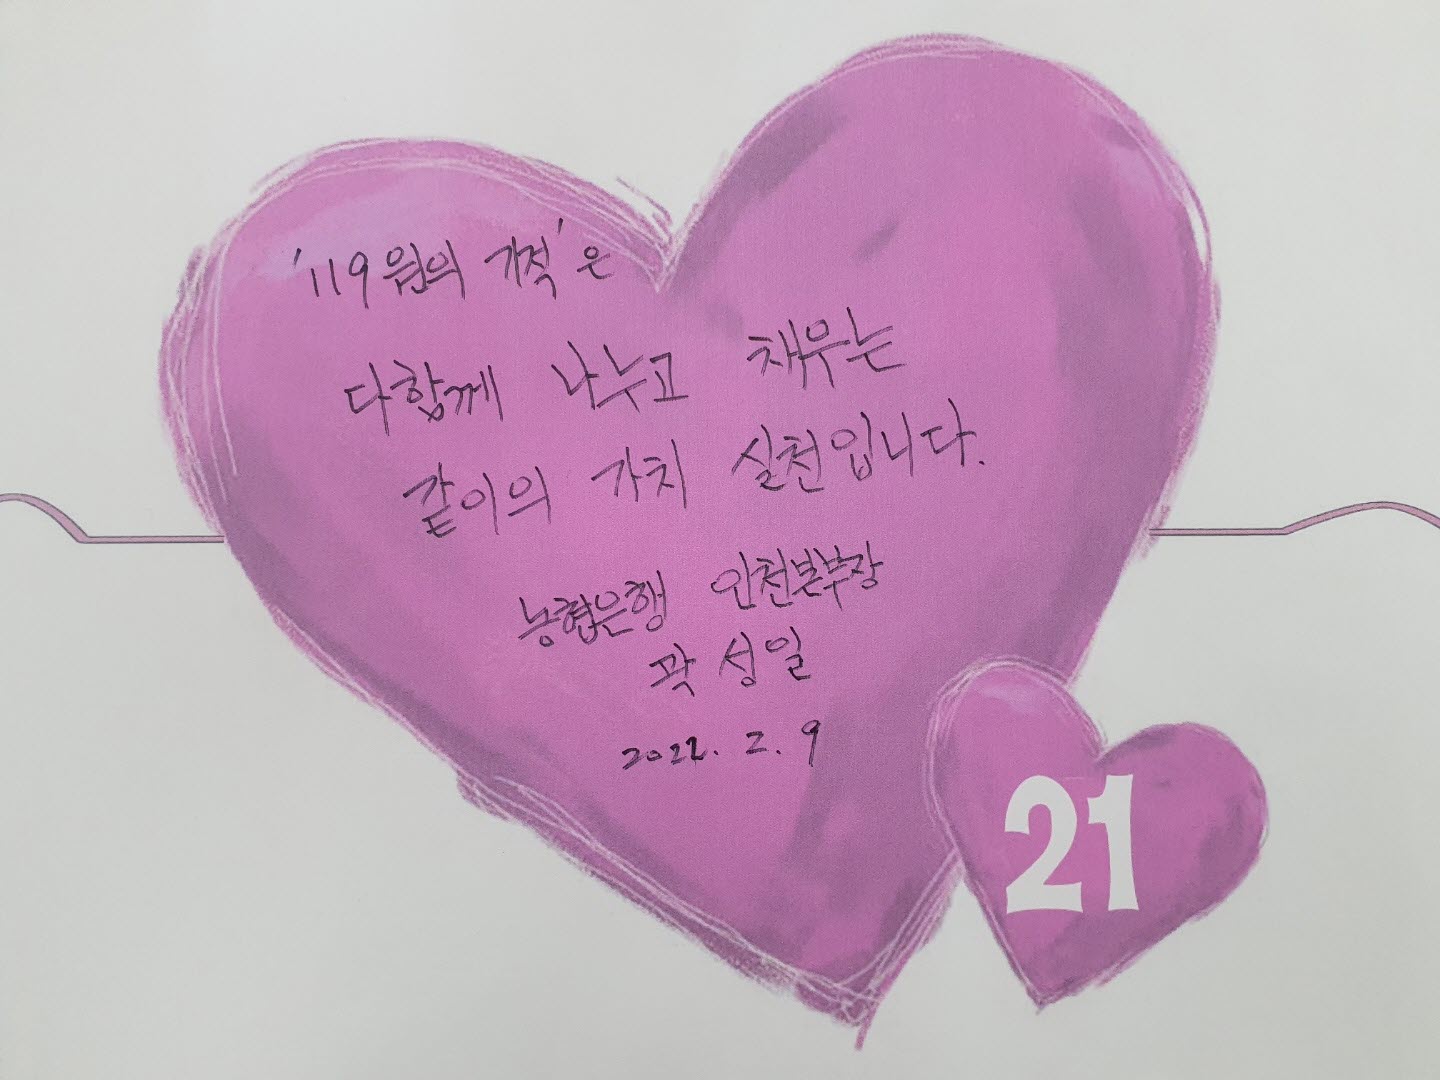 '119원의 기적'은
다함께 나누고 채우는
같이의 가치 실천입니다.
농협은행 인천본부장
곽성일
2022. 2. 9
21